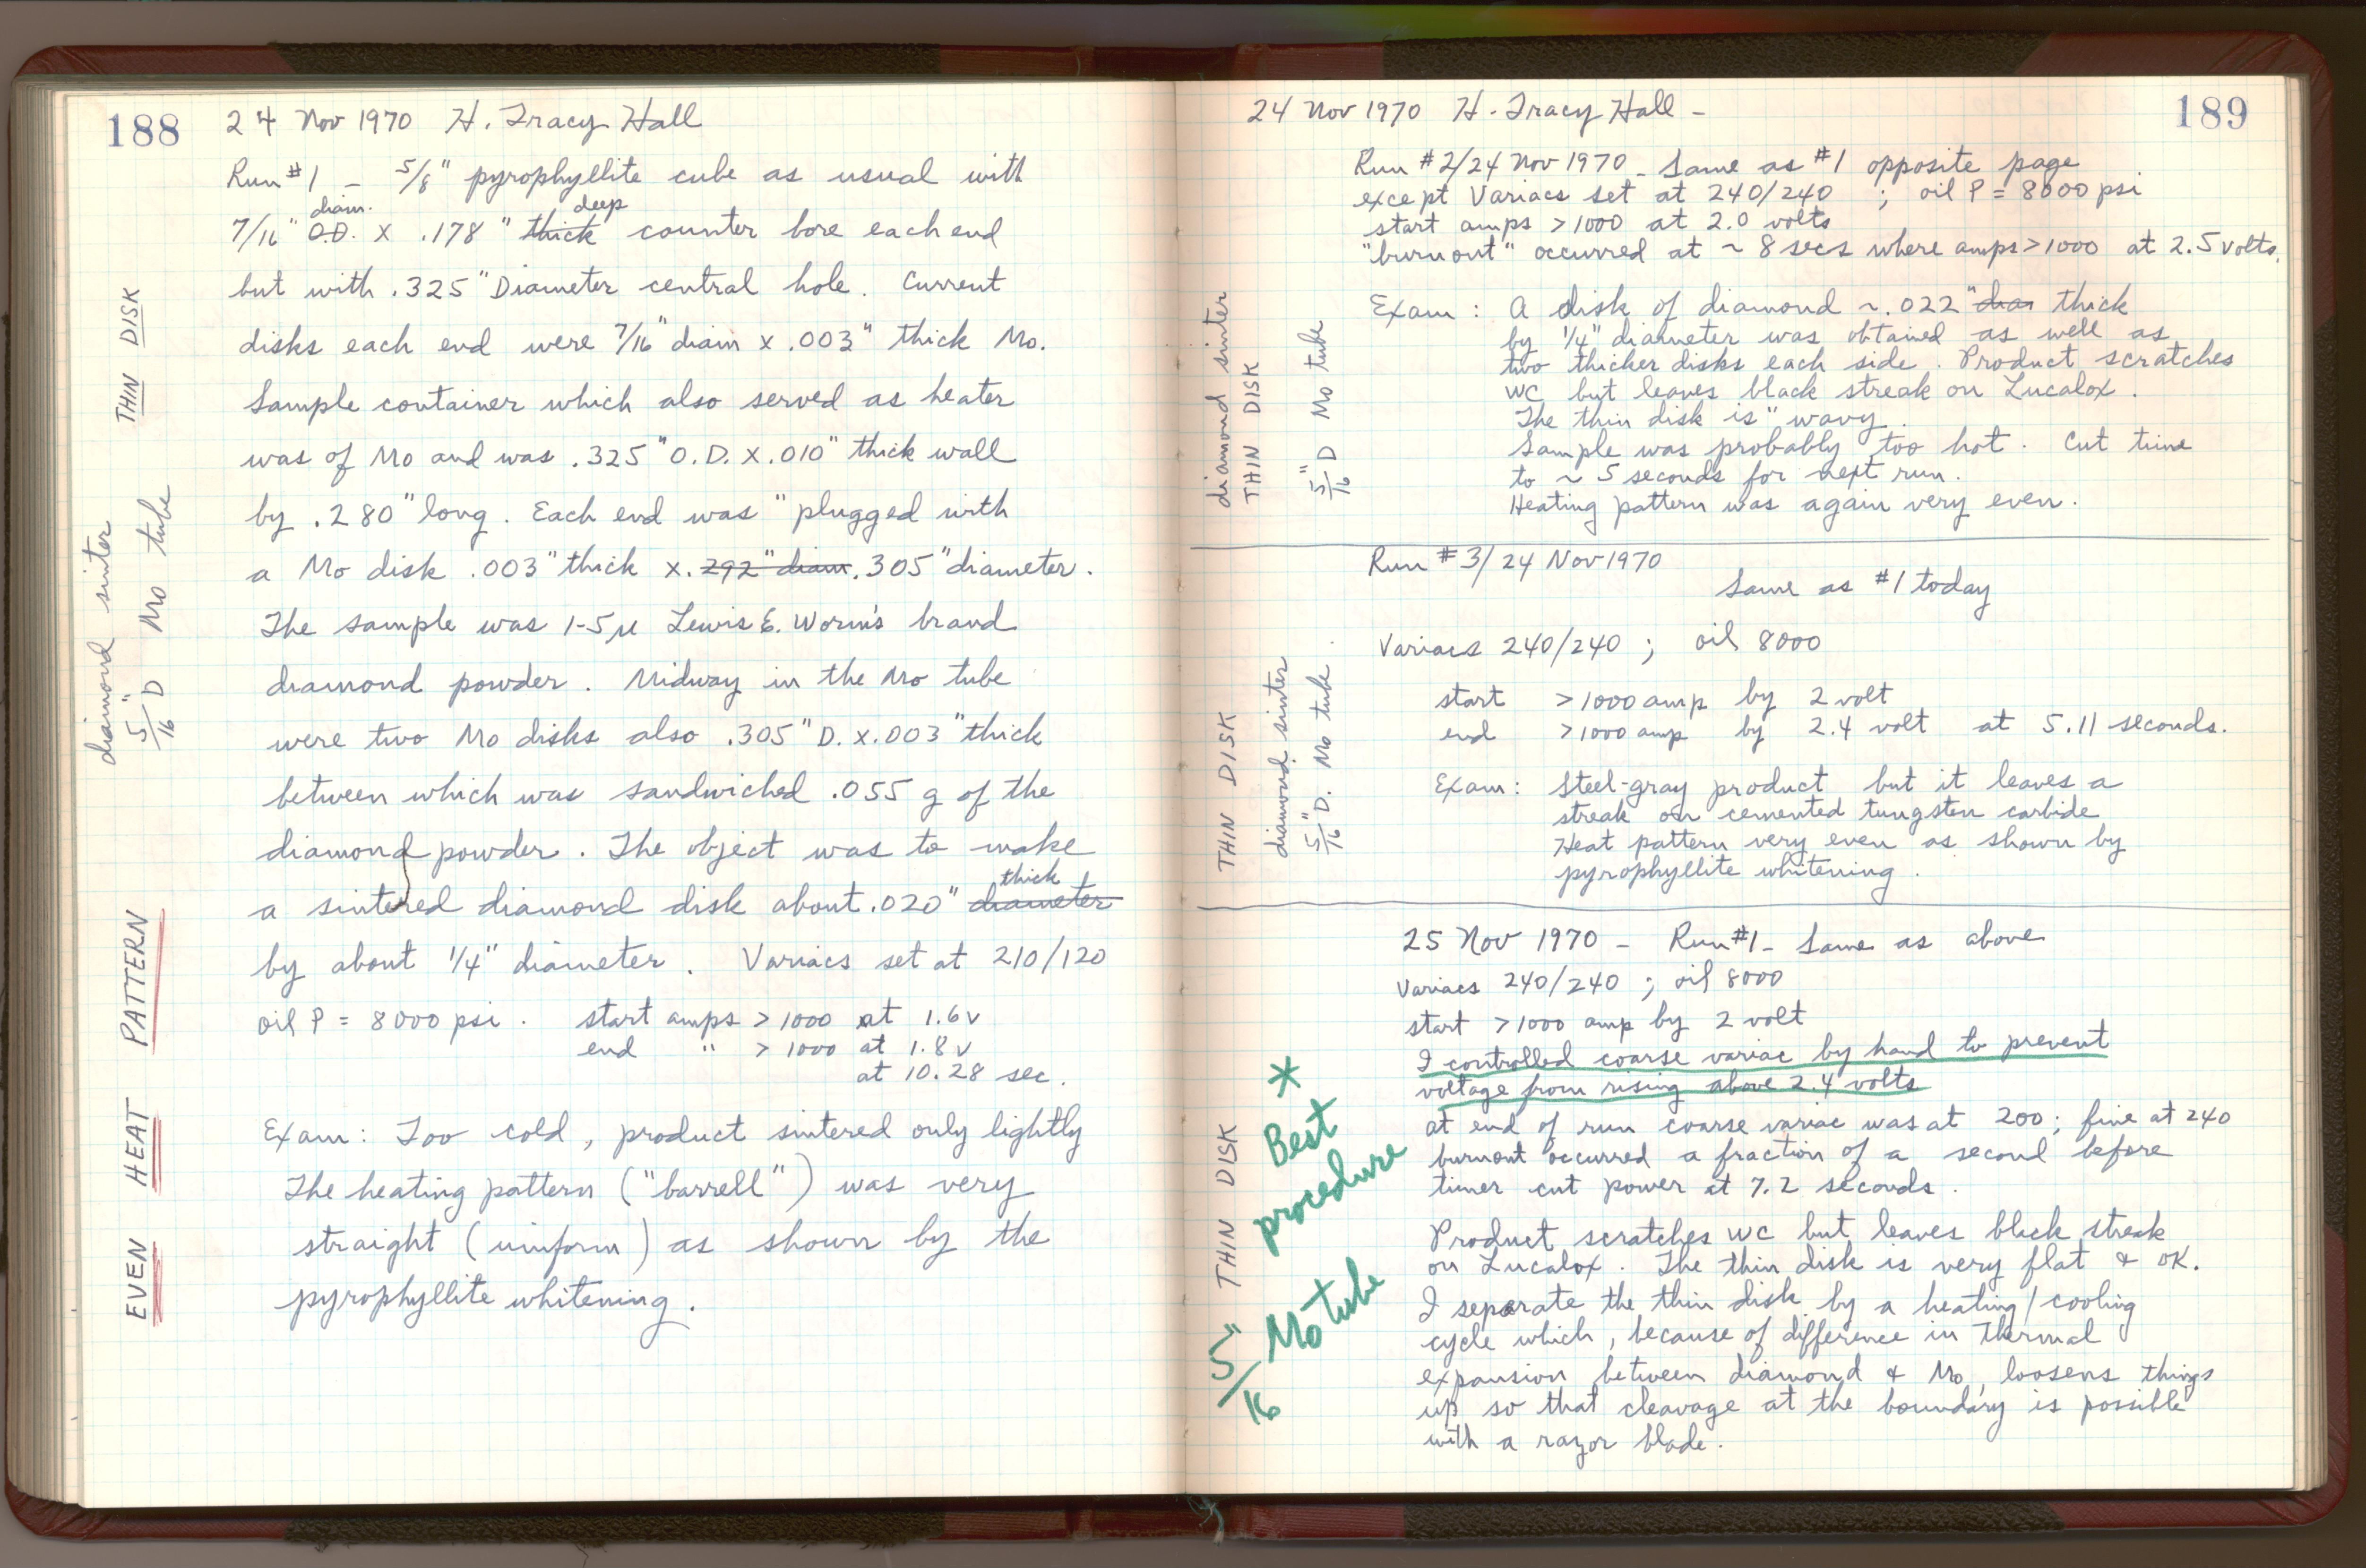 188
24 Nov 1970 H. Tracy Hall
Run #1 – 5/8" pyrophyllite cube as usual with
diam. deep
7/16" O.D. x .178" thick counter bore each end
but with .325" Diameter central hole. Current
disks each end were 7/16" diam x .003" thick Mo.
Sample container which also served as heater
was of Mo and was .325" O.D. x .010" thick wall
by .280" long. Each end was "plugged with
a Mo disk .003" thick x .292" diam. .305" diameter.
The sample was 1-5µ Lewis E. Worm's brand
diamond powder. Midway in the Mo tube
were two Mo disks also .305" D. x .003" thick
between which was sandwiched .055 g of the
diamond powder. The object was to make
thick
a sintered diamond disk about .020" diameter
by about 1/4" diameter. Variacs set at 210/120
oil P = 8000 psi. start amps > 1000 at 1.6v
end " > 1000 at 1.8v
at 10.28 sec.
Exam: Too cold, product sintered only lightly
The heating pattern ("barrell") was very
straight (uniform) as shown by the
pyrophyllite whitening.
diamond sinter THIN DISK
5/16" D Mo tube
EVEN HEAT PATTERN
24 Nov 1970 H. Tracy Hall –
189
Run #2/24 Nov 1970 – Same as #1 opposite page
except Variacs set at 240/240 ; oil P = 8000 psi
start amps > 1000 at 2.0 volts
"burnout" occurred at ~ 8 secs where amps > 1000 at 2.5 volts.
Exam: A disk of diamond ~.022" diam thick
by 1/4" diameter was obtained as well as
two thicker disks each side. Product scratches
WC but leaves black streak on Lucalox.
The thin disk is "wavy.
Sample was probably too hot. Cut time
to ~ 5 seconds for next run.
Heating pattern was again very even.
diamond sinter
THIN DISK
5/16" D Mo tube
Run #3/24 Nov 1970
Same as #1 today
Variacs 240/240 ; oil 8000
start >1000 amp by 2 volt
end >1000 amp by 2.4 volt at 5.11 seconds.
Exam: Steel-gray product but it leaves a
streak on cemented tungsten carbide
Heat pattern very even as shown by
pyrophyllite whitening.
THIN DISK
diamond sinter
5/16" D. Mo tube.
25 Nov 1970 – Run #1 – Same as above
Variacs 240/240 ; oil 8000
start >1000 amp by 2 volt
I controlled coarse variac by hand to prevent
voltage from rising above 2.4 volts
at end of run coarse variac was at 200; fine at 240
burnout occurred a fraction of a second before
timer cut power at 7.2 seconds.
Product scratches WC but leaves black streak
on Lucalox. The thin disk is very flat & OK.
I separate the thin disk by a heating/cooling
cycle which, because of difference in thermal
expansion between diamond & Mo, loosens things
up so that cleavage at the boundary is possible
with a razor blade.
THIN DISK
* Best
procedure
5/16" Mo tube